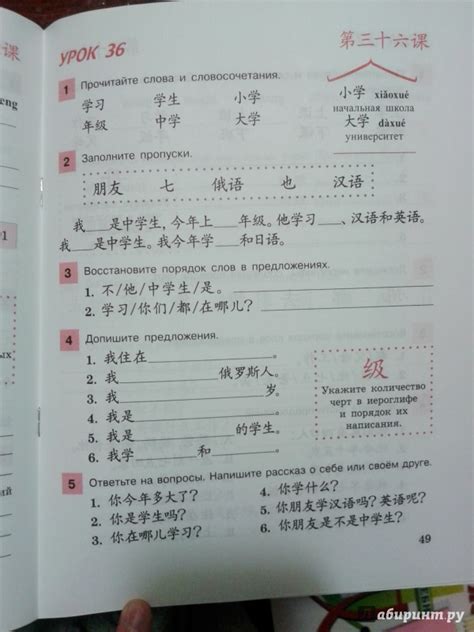 УРОК 36
第三十六课
1 Прочитайте слова и словосочетания.
学习 学生 小学
年级 中学 大学
小学 xiǎoxué
начальная школа
大学 dàxué
университет
2 Заполните пропуски.
朋友 七 俄语 也 汉语
我___是中学生,今年上___年级。他学习___、汉语和英语。
我___是中学生。我今年学___和日语。
3 Восстановите порядок слов в предложениях.
1. 不/他/中学生/是。
2. 学习/你们/都/在哪儿?
4 Допишите предложения.
1. 我住在__________.
2. 我__________俄罗斯人。
3. 我__________岁。
4. 我是__________.
5. 我是__________的学生。
6. 我学______和______.
级
Укажите количество
черт в иероглифе
и порядок их
написания.
5 Ответьте на вопросы. Напишите рассказ о себе или своём друге.
1. 你今年多大了?
2. 你是学生吗?
3. 你在哪儿学习?
4. 你学什么?
5. 你朋友学汉语吗?英语呢?
6. 你朋友是不是中学生?
49
Лабиринт.ру